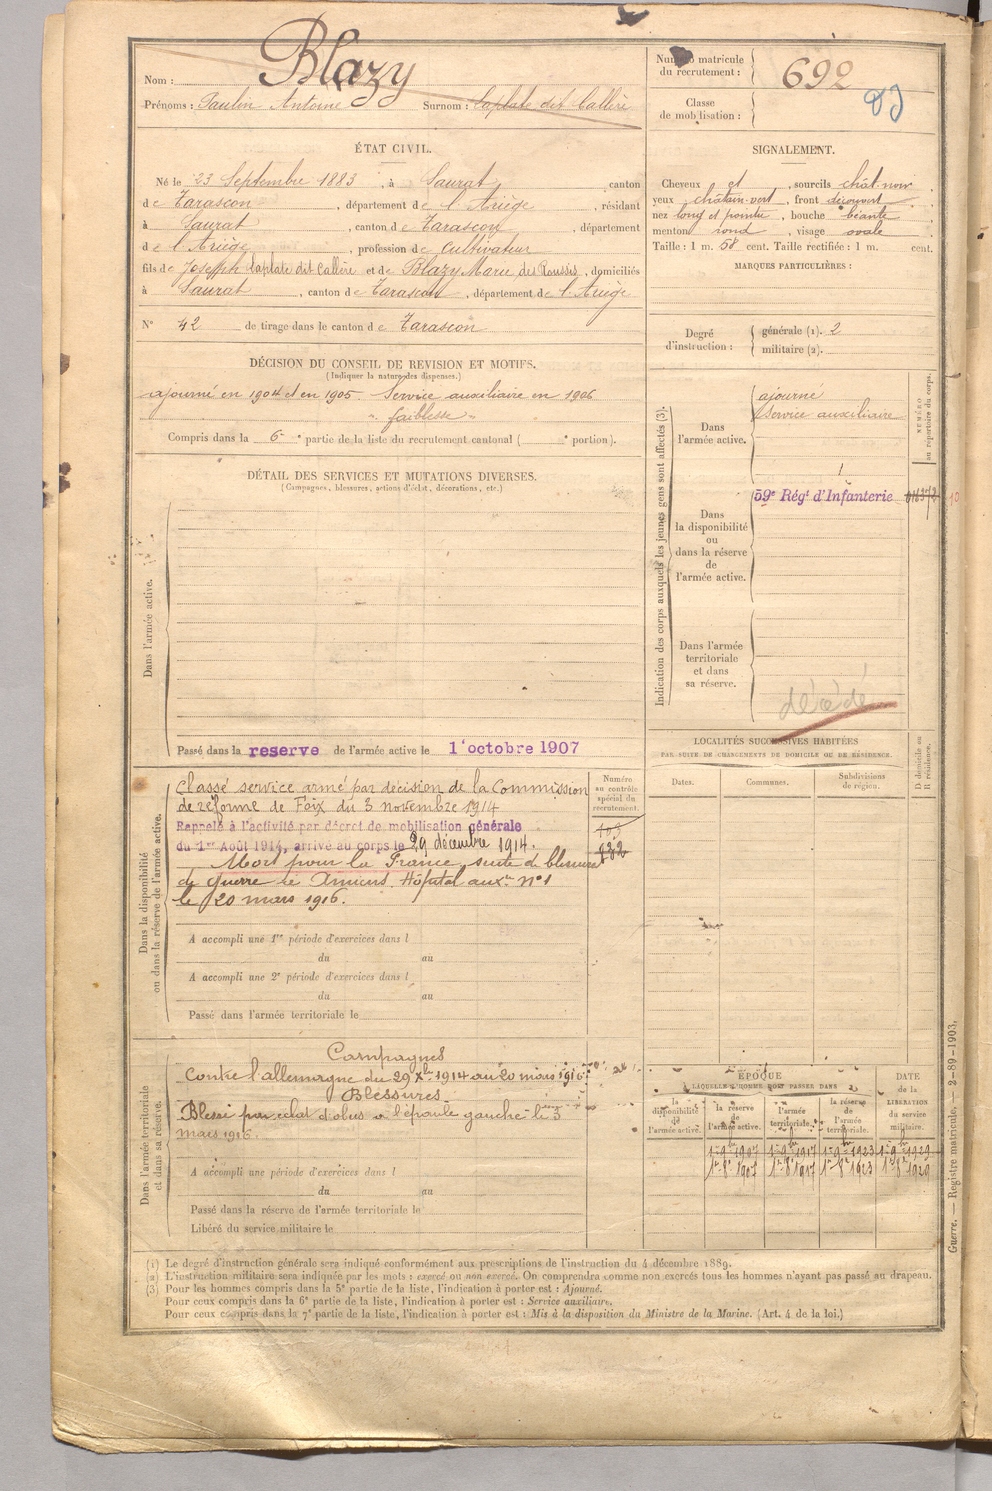 Nom : Blazy
Prénoms : Paulin Antoine Surnom : Laplate dit Callère
Numéro matricule
du recrutement : 692
Classe
de mobilisation :
ÉTAT CIVIL.
Né le 23 Septembre 1883, à Saurat, canton
de Tarascon, département de l'Ariège, résidant
à Saurat, canton de Tarascon, département
de l'Ariège, profession de Cultivateur
fils de Joseph Laplate dit Callère et de Blazy Marie des Rousses, domiciliés
à Saurat, canton de Tarascon, département de l'Ariège
N° 42 de tirage dans le canton de Tarascon
SIGNALEMENT.
Cheveux et, sourcils chât-noir
yeux châtain-vert, front découvert
nez long et pointu, bouche béante
menton rond, visage ovale
Taille : 1 m. 58 cent. Taille rectifiée : 1 m. cent.
MARQUES PARTICULIÈRES :
Degré
d'instruction :
générale (1). 2
militaire (2).
DÉCISION DU CONSEIL DE REVISION ET MOTIFS.
(Indiquer la nature des dispenses.)
ajourné en 1904 et en 1905. Service auxiliaire en 1906
" faiblesse "
Compris dans la 6e partie de la liste du recrutement cantonal ( e portion).
DÉTAIL DES SERVICES ET MUTATIONS DIVERSES.
(Campagnes, blessures, actions d'éclat, décorations, etc.)
Dans l'armée active.
Passé dans la reserve de l'armée active le 1er octobre 1907
Indication des corps auxquels les jeunes gens sont affectés (3).
NUMÉRO
au répertoire du corps.
Dans
l'armée active.
ajourné
Service auxiliaire
Dans
la disponibilité
ou
dans la réserve
de
l'armée active.
59e Régt d'Infanterie
Dans l'armée
territoriale
et dans
sa réserve.
décédé
LOCALITÉS SUCCESSIVES HABITÉES
PAR SUITE DE CHANGEMENTS DE DOMICILE OU DE RÉSIDENCE.
Dates.
Communes.
Subdivisions
de région.
D domicile ou
R résidence.
Dans la disponibilité
ou dans la réserve de l'armée active.
Numéro
au contrôle
spécial du
recrutement.
982
Classé service armé par décision de la Commission
de réforme de Foix du 3 novembre 1914
Rappelé à l'activité par décret de mobilisation générale
du 1er Août 1914, arrivé au corps le 29 décembre 1914.
Mort pour la France, suite de blessures
de guerre à Amiens, Hôpital auxre n° 1
le 20 mars 1916.
A accompli une 1re période d'exercices dans l
du au
A accompli une 2e période d'exercices dans l
du au
Passé dans l'armée territoriale le
Dans l'armée territoriale
et dans sa réserve.
Campagnes
Contre l'allemagne du 29 Xbre 1914 au 20 mars 1916.
Blessures
Blessé par éclat d'obus à l'épaule gauche le 3
mars 1916.
A accompli une période d'exercices dans l
du au
Passé dans la réserve de l'armée territoriale le
Libéré du service militaire le
ÉPOQUE
À LAQUELLE L'HOMME DOIT PASSER DANS
DATE
de la
LIBÉRATION
du service
militaire.
la
disponibilité
de
l'armée active.
la réserve
de
l'armée active.
l'armée
territoriale.
la réserve
de
l'armée
territoriale.
1er 9bre 1907 1er 9bre 1917 1er 9bre 1923 1er 9bre 1929
1er 8bre 1907 1er 8bre 1917 1er 8bre 1923 1er 8bre 1929
(1) Le degré d'instruction générale sera indiqué conformément aux prescriptions de l'instruction du 4 décembre 1889.
(2) L'instruction militaire sera indiquée par les mots : exercé ou non exercé. On comprendra comme non exercés tous les hommes n'ayant pas passé au drapeau.
(3) Pour les hommes compris dans la 5e partie de la liste, l'indication à porter est : Ajourné.
Pour ceux compris dans la 6e partie de la liste, l'indication à porter est : Service auxiliaire.
Pour ceux compris dans la 7e partie de la liste, l'indication à porter est : Mis à la disposition du Ministre de la Marine. (Art. 4 de la loi.)
Guerre. — Registre matricule. — 2-89-1903.